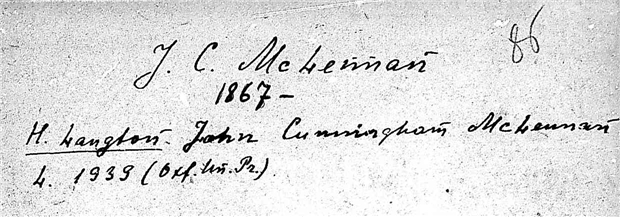 86
J. C. McLennan
1867-
H. Langton. John Cunningham McLennan
L. 1939 (Oxf. Un. Pr.).